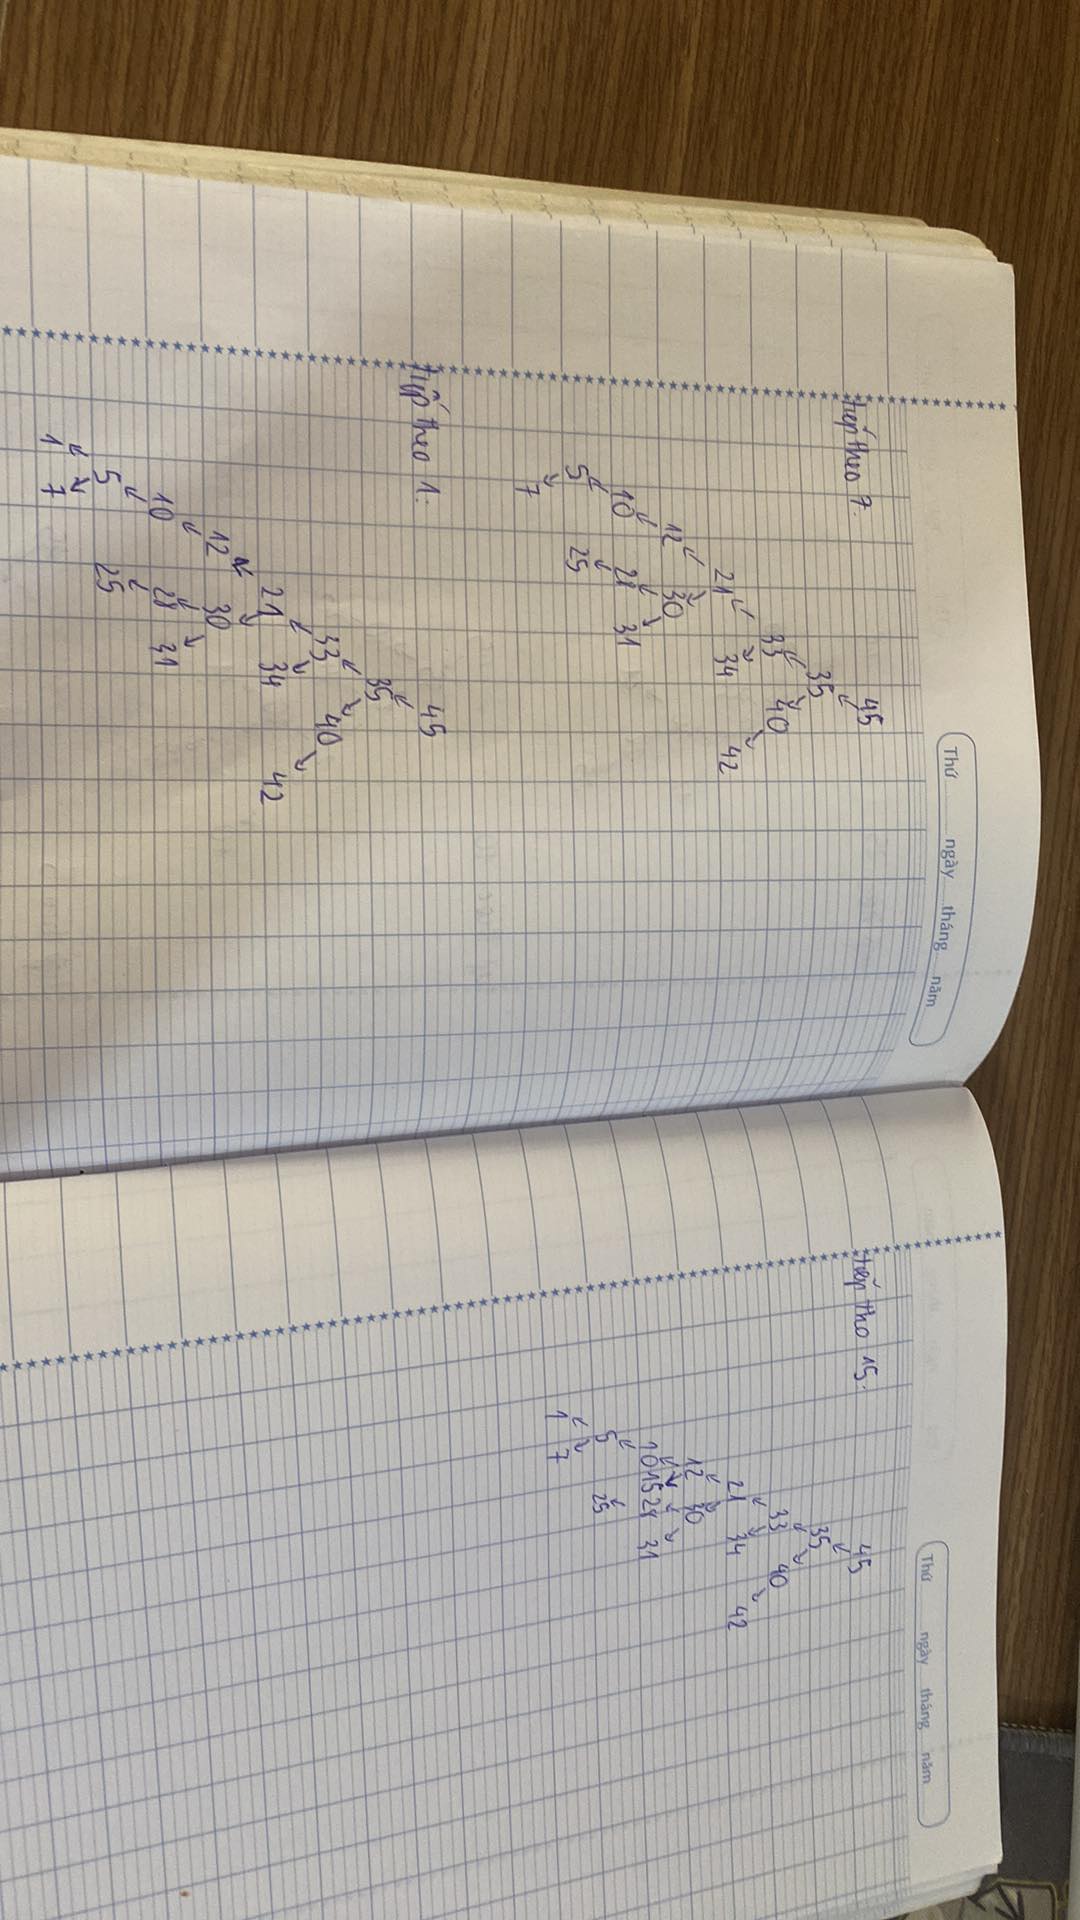 Thứ ngày tháng năm
tiếp theo 7.
45
35
33 40
21 34 42
12 30
10 28 31
5 25
7
tiếp theo 1:
45
35
33 40
21 34 42
12 30
10 28 31
5 25
1 7
Thứ ngày tháng năm
tiếp tho 15:
45
35
33 40
21 34 42
12 30
10 15 28 31
5 25
1 7